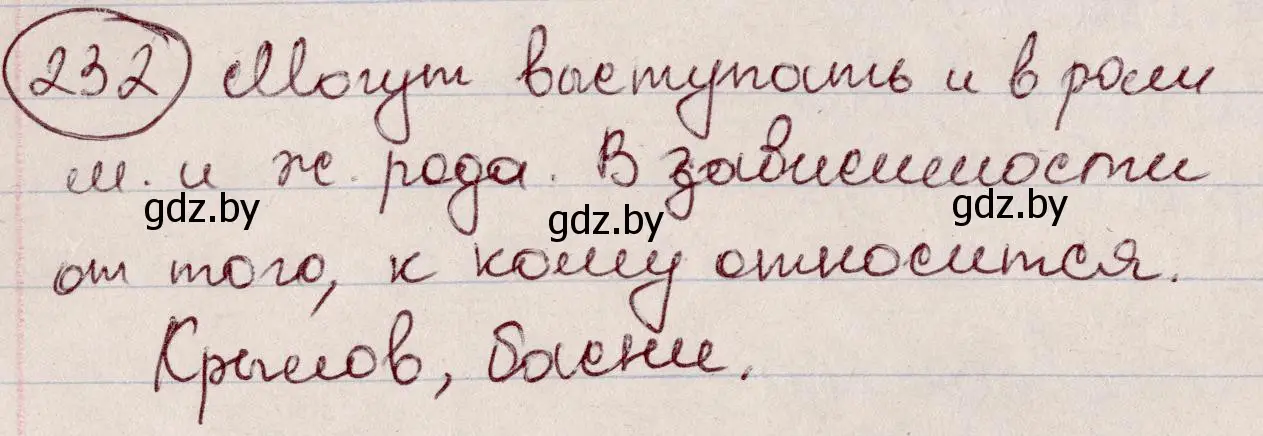 232 Могут выступать и в роли
м. и ж. рода. В зависимости
gdz.by gdz.by gdz.by
от того, к кому относится.
Крылов, басни.